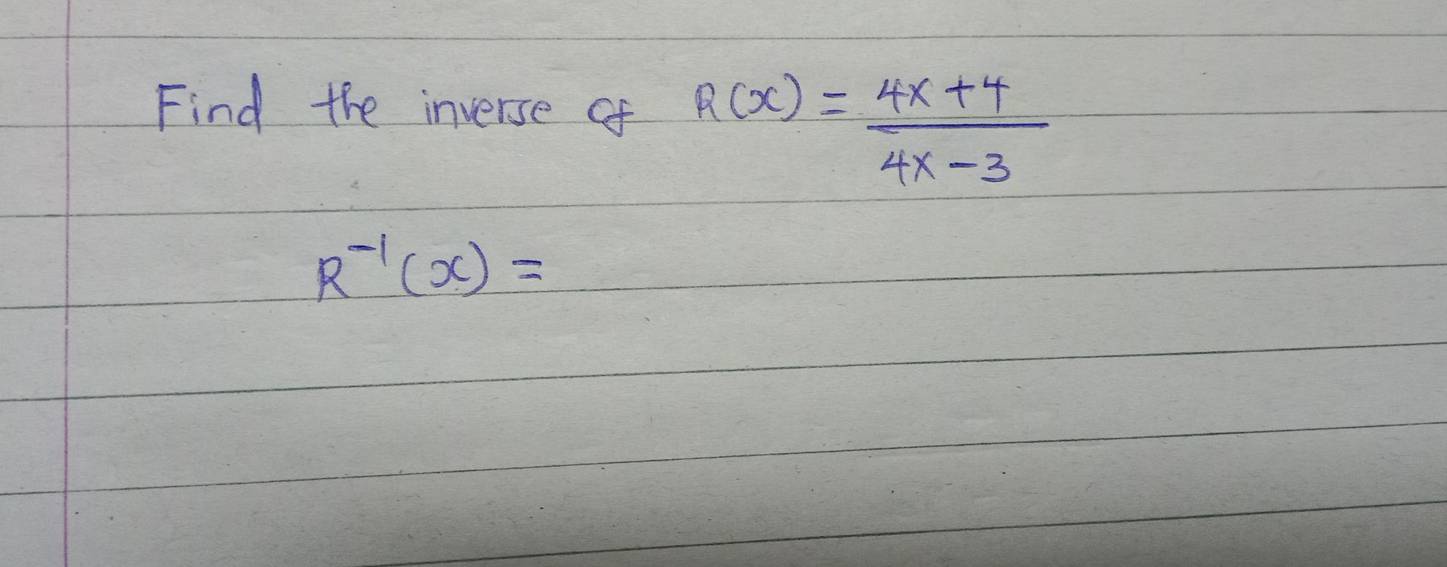 Find the inverse of R(x) = \frac{4x+4}{4x-3}
R^{-1}(x) =